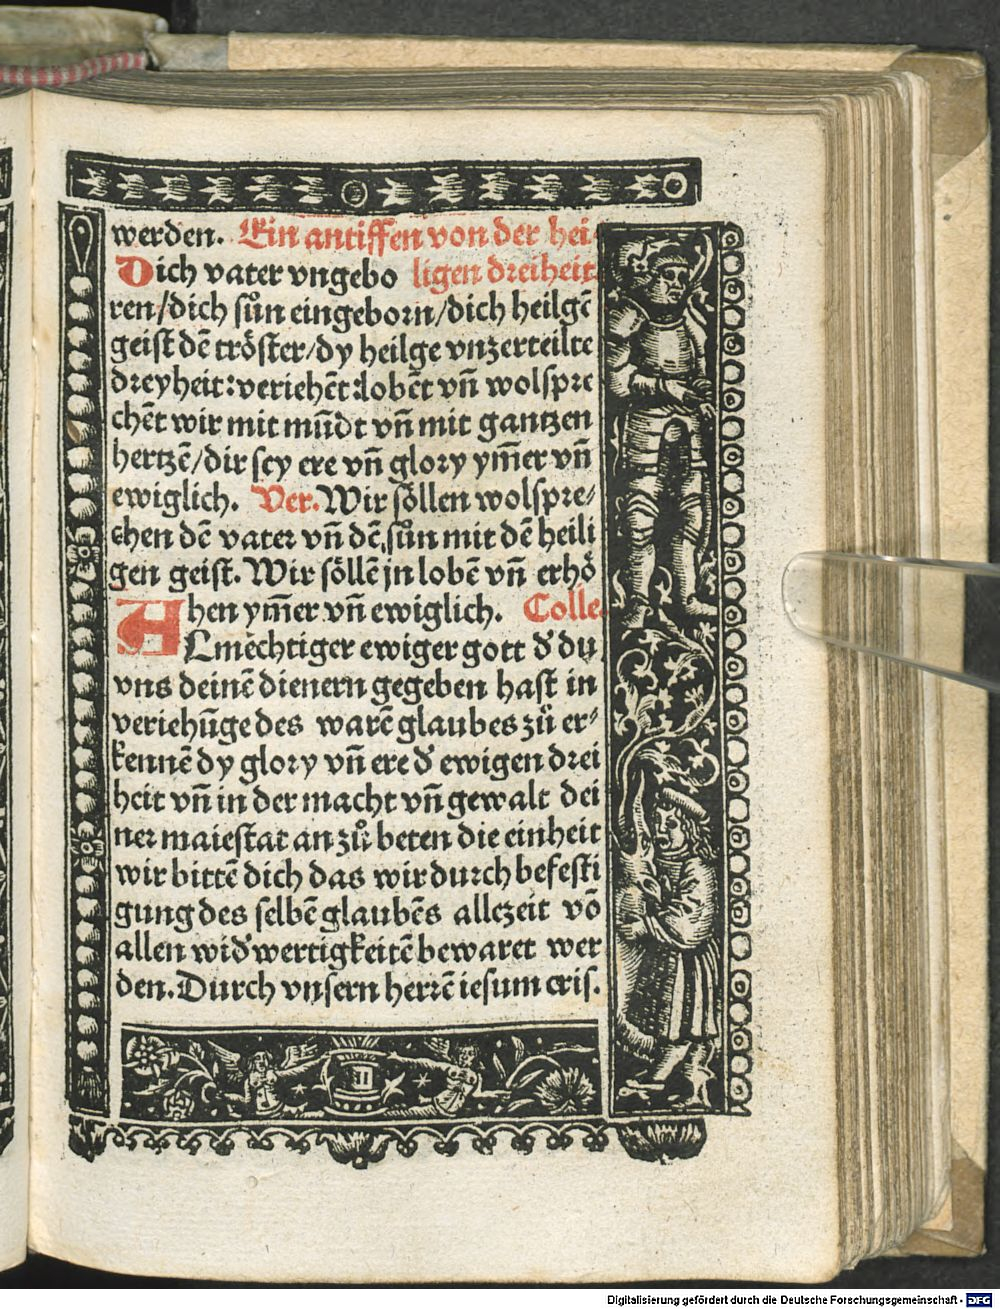 werden. Ein antiffen von der hei⸗
Dich vater vngebo ligen dreiheit
ren/dich sůn eingeborn/dich heilgē
geist dē tröster/dy heilge vnzerteilte
dreyheit:veriehēt:lobēt vn̄ wolspre
chēt wir mit mūdt vn̄ mit gantzen
hertzē/dir sey ere vn̄ glory ym̄er vn̄
ewiglich. Ver. Wir söllen wolspre⸗
chen dē vater vn̄ dē sůn mit dē heili
gen geist. Wir söllē jn lobē vn̄ erhö
hen ym̄er vn̄ ewiglich. Colle.
ALmechtiger ewiger gott d̓ du
vns deinē dienern gegeben hast in
veriehūge des warē glaubes zů er⸗
kennē dy glory vn̄ ere d̓ ewigen drei
heit vn̄ in der macht vn̄ gewalt dei
ner maiestat an zů beten die einheit
wir bittē dich das wir durch befesti
gung des selbē glaubēs allezeit vō
allen wid̓wertigkeitē bewaret wer
den. Durch vnsern herrē iesum cris.
Digitalisierung gefördert durch die Deutsche Forschungsgemeinschaft - DFG